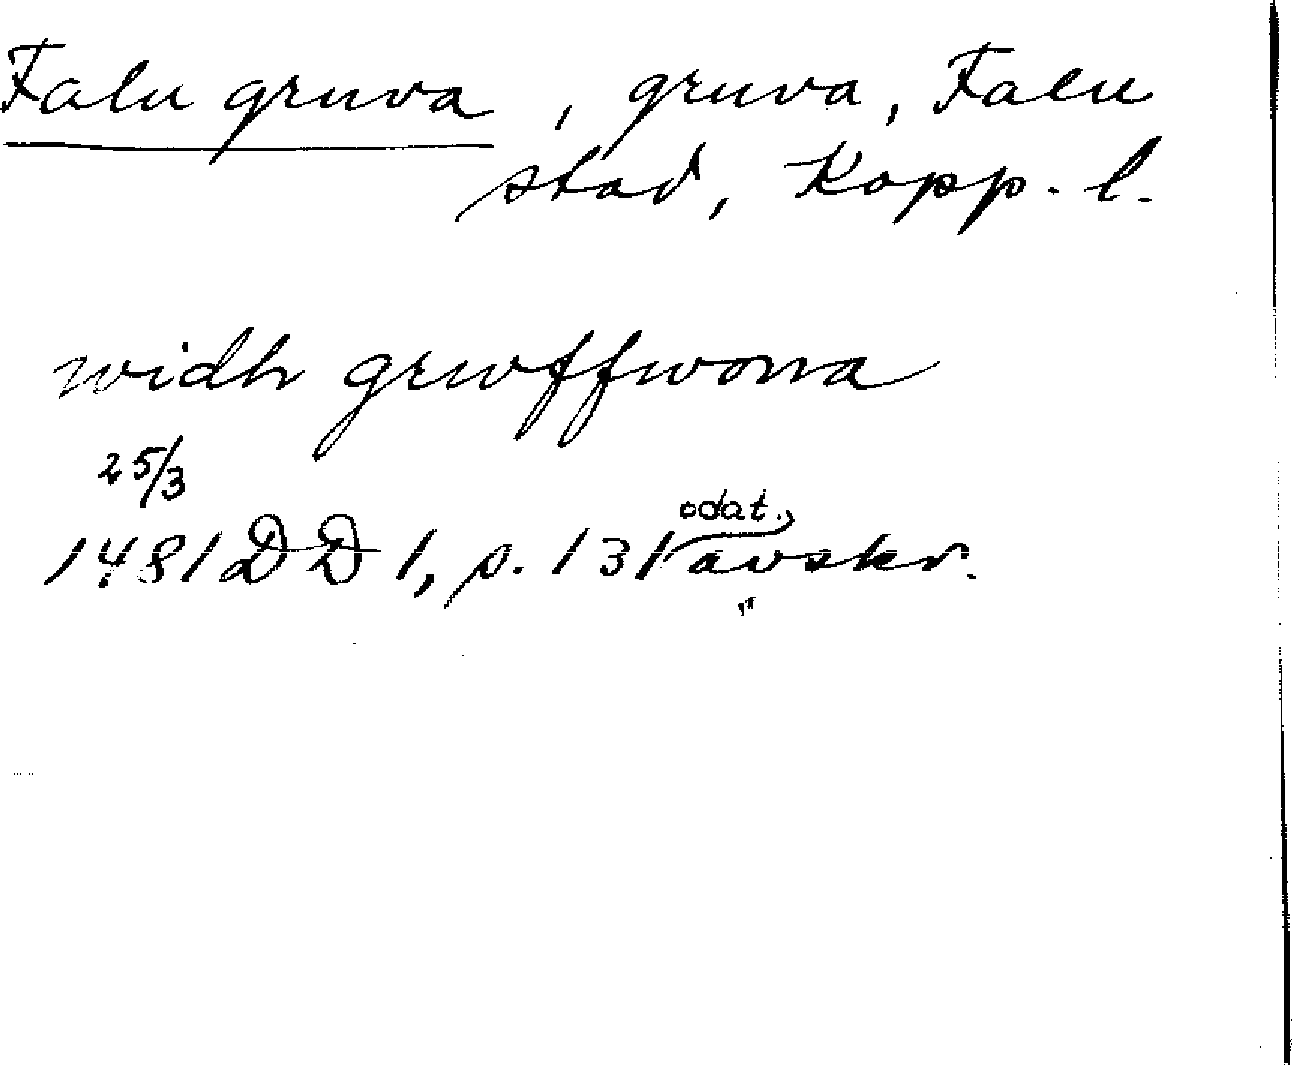 Falu gruva, gruva, Falu
stad, Kopp. l.
widh grwffwona
25/3
1481 DD 1, s. 131 odat. avskr.
"